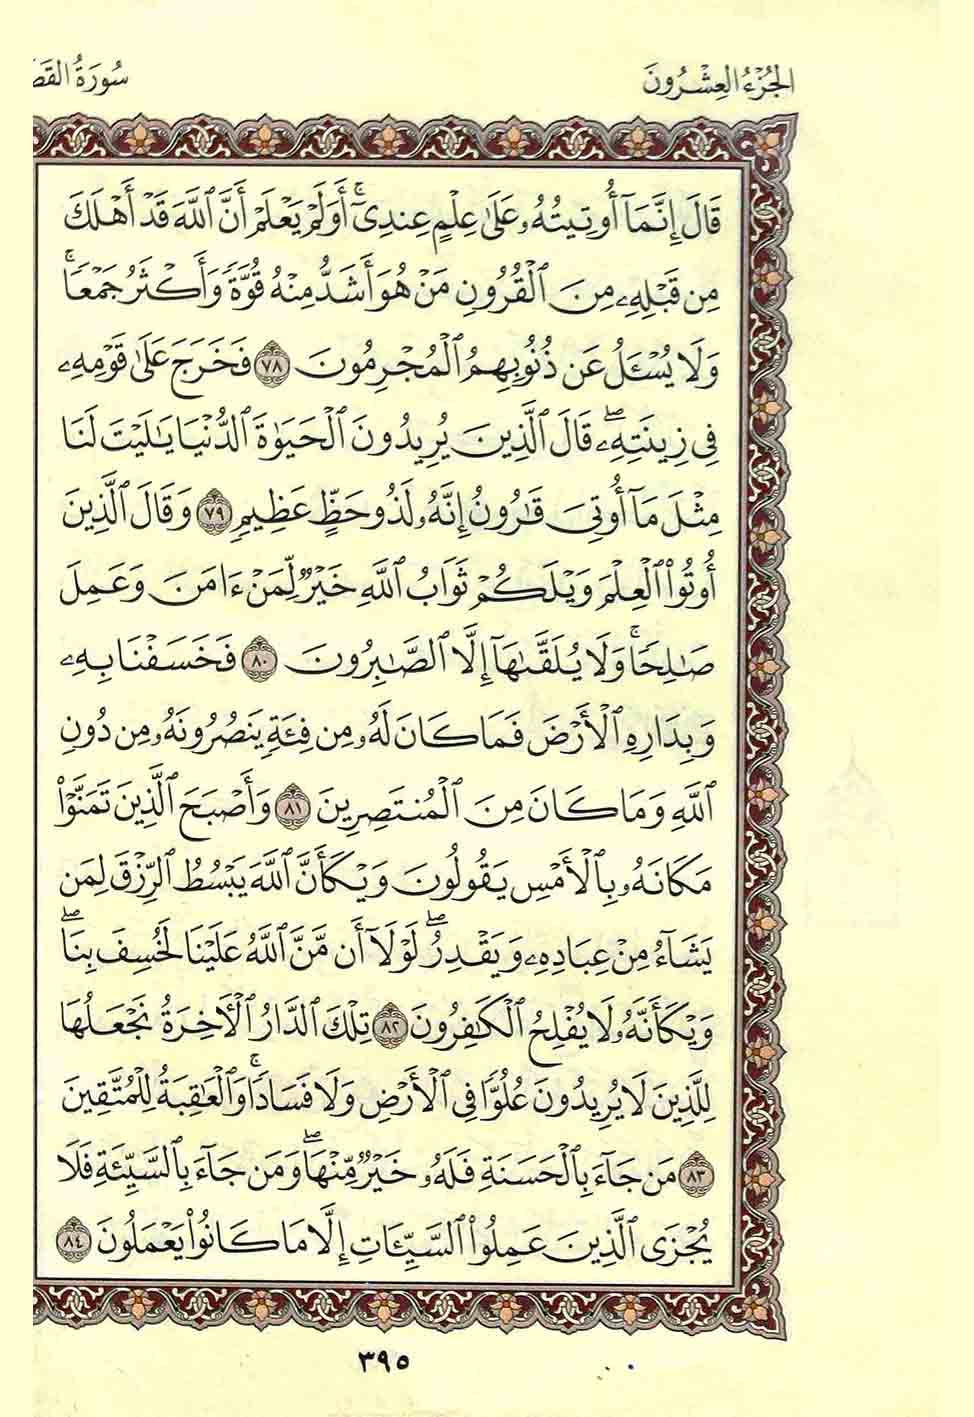 الجُزْءُ العِشْرُونَ
سُورَةُ القَصَ
قَالَ إِنَّمَآ أُوتِيتُهُۥ عَلَىٰ عِلْمٍ عِندِىٓ ۚ أَوَلَمْ يَعْلَمْ أَنَّ ٱللَّهَ قَدْ أَهْلَكَ
مِن قَبْلِهِۦ مِنَ ٱلْقُرُونِ مَنْ هُوَ أَشَدُّ مِنْهُ قُوَّةً وَأَكْثَرُ جَمْعًا ۚ
وَلَا يُسْـَٔلُ عَن ذُنُوبِهِمُ ٱلْمُجْرِمُونَ ٧٨ فَخَرَجَ عَلَىٰ قَوْمِهِۦ
فِى زِينَتِهِۦ ۖ قَالَ ٱلَّذِينَ يُرِيدُونَ ٱلْحَيَوٰةَ ٱلدُّنْيَا يَـٰلَيْتَ لَنَا
مِثْلَ مَآ أُوتِىَ قَـٰرُونُ إِنَّهُۥ لَذُو حَظٍّ عَظِيمٍ ٧٩ وَقَالَ ٱلَّذِينَ
أُوتُوا۟ ٱلْعِلْمَ وَيْلَكُمْ ثَوَابُ ٱللَّهِ خَيْرٌ لِّمَنْ ءَامَنَ وَعَمِلَ
صَـٰلِحًا ۚ وَلَا يُلَقَّىٰهَآ إِلَّا ٱلصَّـٰبِرُونَ ٨٠ فَخَسَفْنَا بِهِۦ
وَبِدَارِهِ ٱلْأَرْضَ فَمَا كَانَ لَهُۥ مِن فِئَةٍ يَنصُرُونَهُۥ مِن دُونِ
ٱللَّهِ وَمَا كَانَ مِنَ ٱلْمُنتَصِرِينَ ٨١ وَأَصْبَحَ ٱلَّذِينَ تَمَنَّوْا۟
مَكَانَهُۥ بِٱلْأَمْسِ يَقُولُونَ وَيْكَأَنَّ ٱللَّهَ يَبْسُطُ ٱلرِّزْقَ لِمَن
يَشَآءُ مِنْ عِبَادِهِۦ وَيَقْدِرُ ۖ لَوْلَآ أَن مَّنَّ ٱللَّهُ عَلَيْنَا لَخَسَفَ بِنَا ۖ
وَيْكَأَنَّهُۥ لَا يُفْلِحُ ٱلْكَـٰفِرُونَ ٨٢ تِلْكَ ٱلدَّارُ ٱلْـَٔاخِرَةُ نَجْعَلُهَا
لِلَّذِينَ لَا يُرِيدُونَ عُلُوًّا فِى ٱلْأَرْضِ وَلَا فَسَادًا ۚ وَٱلْعَـٰقِبَةُ لِلْمُتَّقِينَ
٨٣ مَن جَآءَ بِٱلْحَسَنَةِ فَلَهُۥ خَيْرٌ مِّنْهَا ۖ وَمَن جَآءَ بِٱلسَّيِّئَةِ فَلَا
يُجْزَى ٱلَّذِينَ عَمِلُوا۟ ٱلسَّيِّـَٔاتِ إِلَّا مَا كَانُوا۟ يَعْمَلُونَ ٨٤
٣٩٥